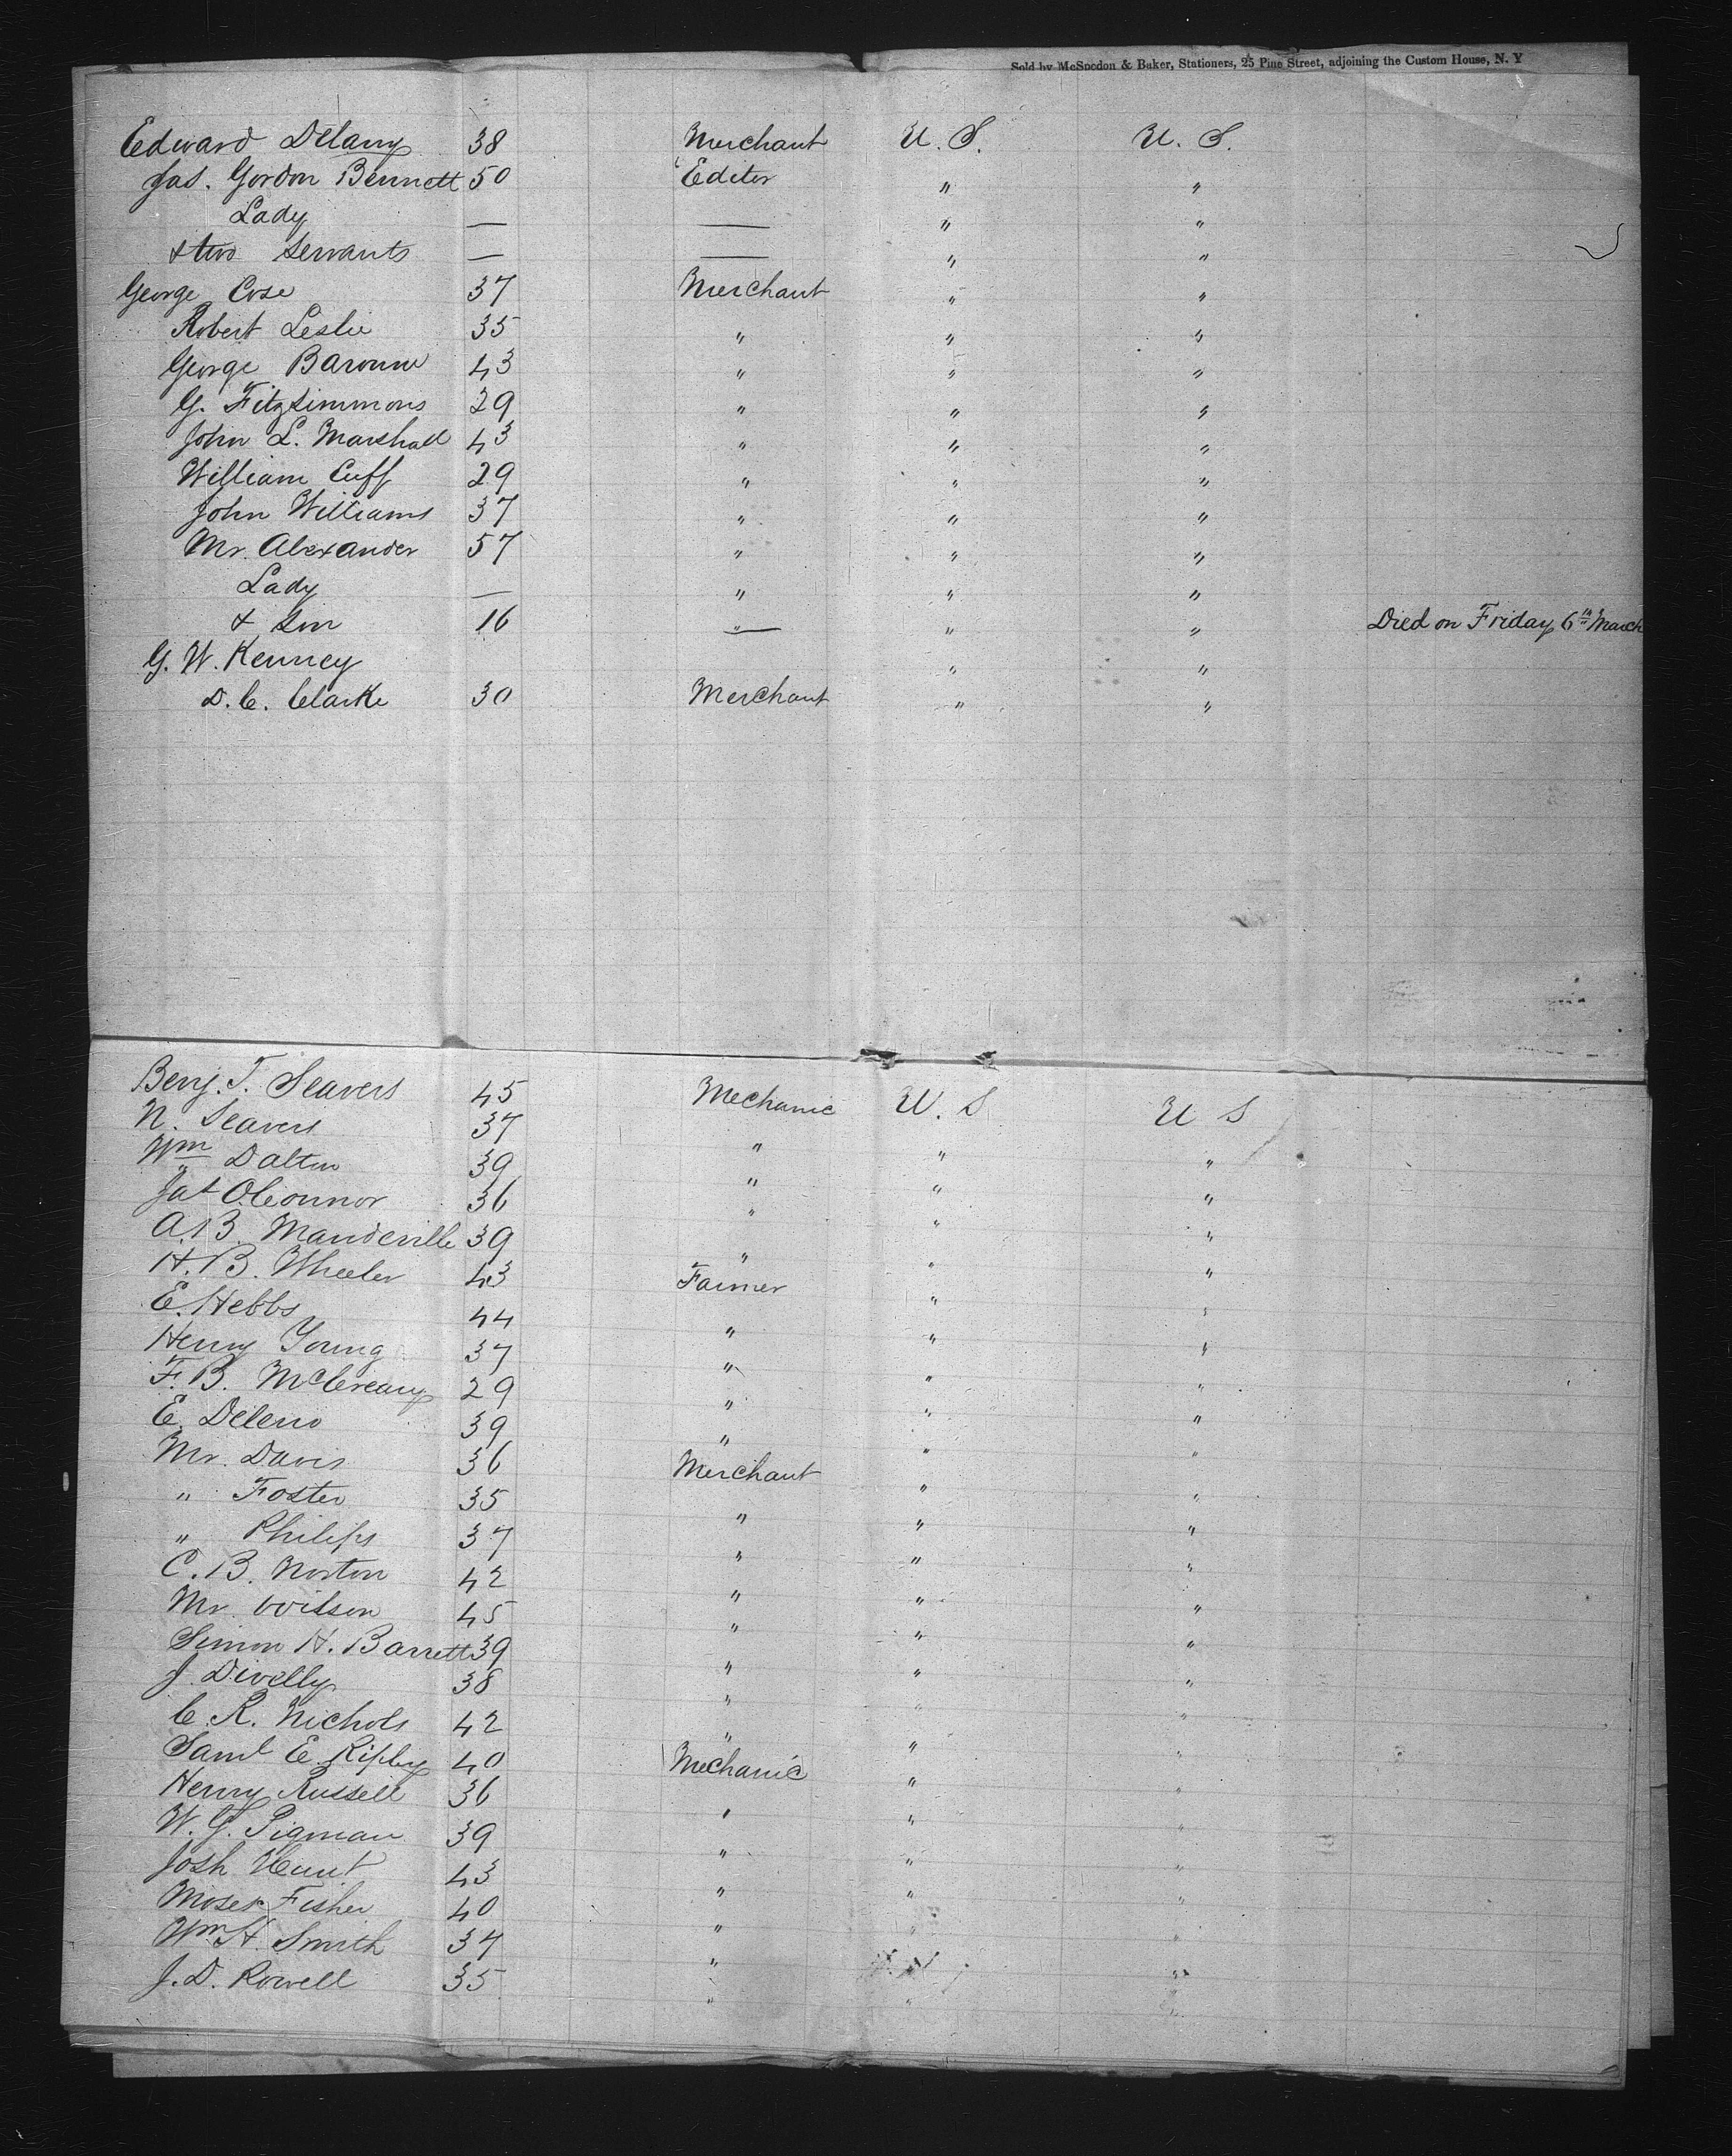 Sold by McSpedon & Baker, Stationers, 25 Pine Street, adjoining the Custom House, N. Y
Edward Delany 38 Merchant U. S. U. S.
Jas. Gordon Bennett 50 Editor " "
Lady — — " "
& two Servants — — " "
George Cose 37 Merchant " "
Robert Leslie 35 " " "
George Baronne 43 " " "
G. Fitzsimmons 29 " " "
John L. Marshall 43 " " "
William Cuff 29 " " "
John Williams 37 " " "
Mr. Alexander 57 " " "
Lady — " " "
& Son 16 " " " Died on Friday 6th March
G. W. Kenney " "
D. C. Clarke 30 Merchant " "
Benj. T. Seavers 45 Mechanic U. S U S
N. Seavers 37 " " "
Wm Dalton 39 " " "
Jas O.Connor 36 " " "
A. B. Mandeville 39 " " "
H. B. Wheeler 43 Farmer " "
E. Hebbs 44 " " "
Henry Young 37 " " "
F. B. McCreary 29 " " "
E. Deleno 39 " " "
Mr. Davis 36 Merchant " "
" Foster 35 " " "
" Philips 37 " " "
C. B. Norton 42 " " "
Mr. Wilson 45 " " "
Simon H. Barrett 39 " " "
J. Divelly 38 " " "
C. R. Nichols 42 " " "
Saml E. Ripley 40 Mechanic " "
Henry Russell 36 " " "
W. G. Pigman 39 " " "
Josh Hunt 43 " " "
Moses Fisher 40 " " "
Wm H. Smith 37 " "
J. D. Rowell 35 " "